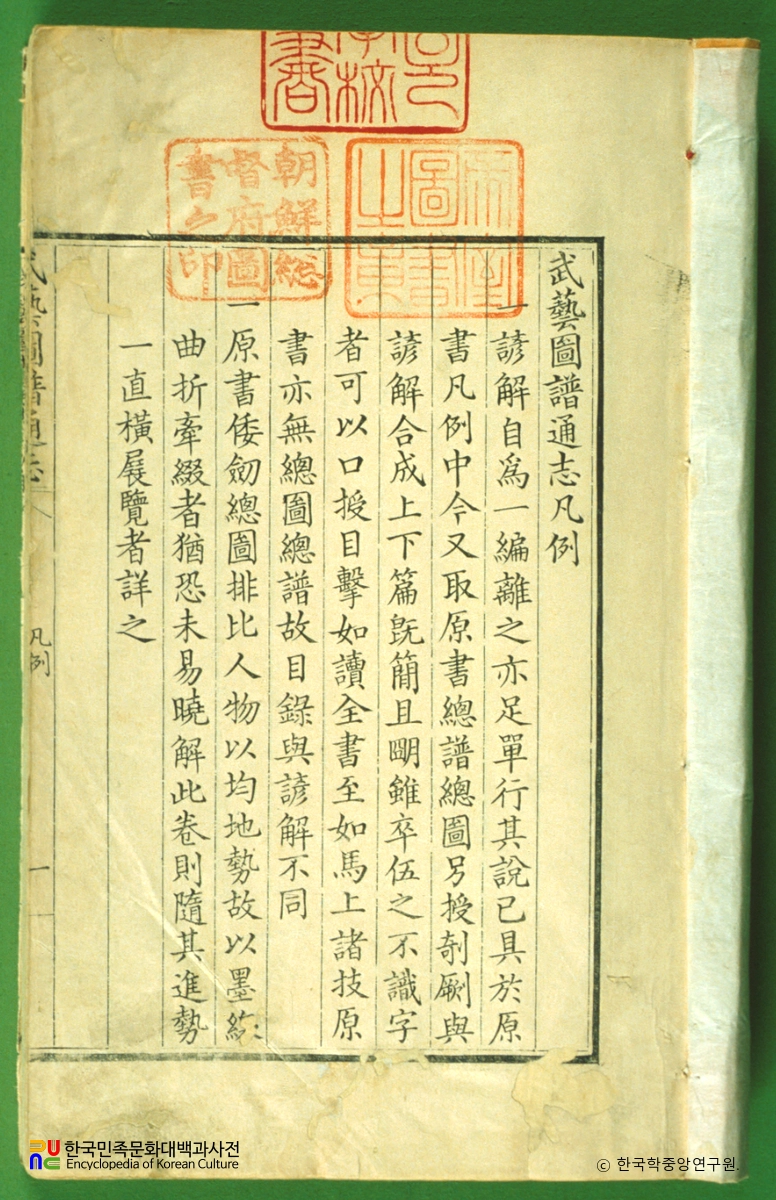 朝鮮總
督府圖
書之印
帝室
圖書
之章
武藝圖譜通志凡例
一諺解自爲一編離之亦足單行其說已具於原
書凡例中今又取原書總譜總圖另授剞劂與
諺解合成上下篇旣簡且朙雖卒伍之不識字
者可以口授目擊如讀全書至如馬上諸技原
書亦無總圖總譜故目錄與諺解不同
一原書倭劒總圖排比人物以均地勢故以墨
曲折牽綴者猶恐未易曉解此卷則隨其進勢
一直橫展覽者詳之
武藝圖譜通志
凡例
一
한국민족문화대백과사전
Encyclopedia of Korean Culture
ⓒ 한국학중앙연구원.